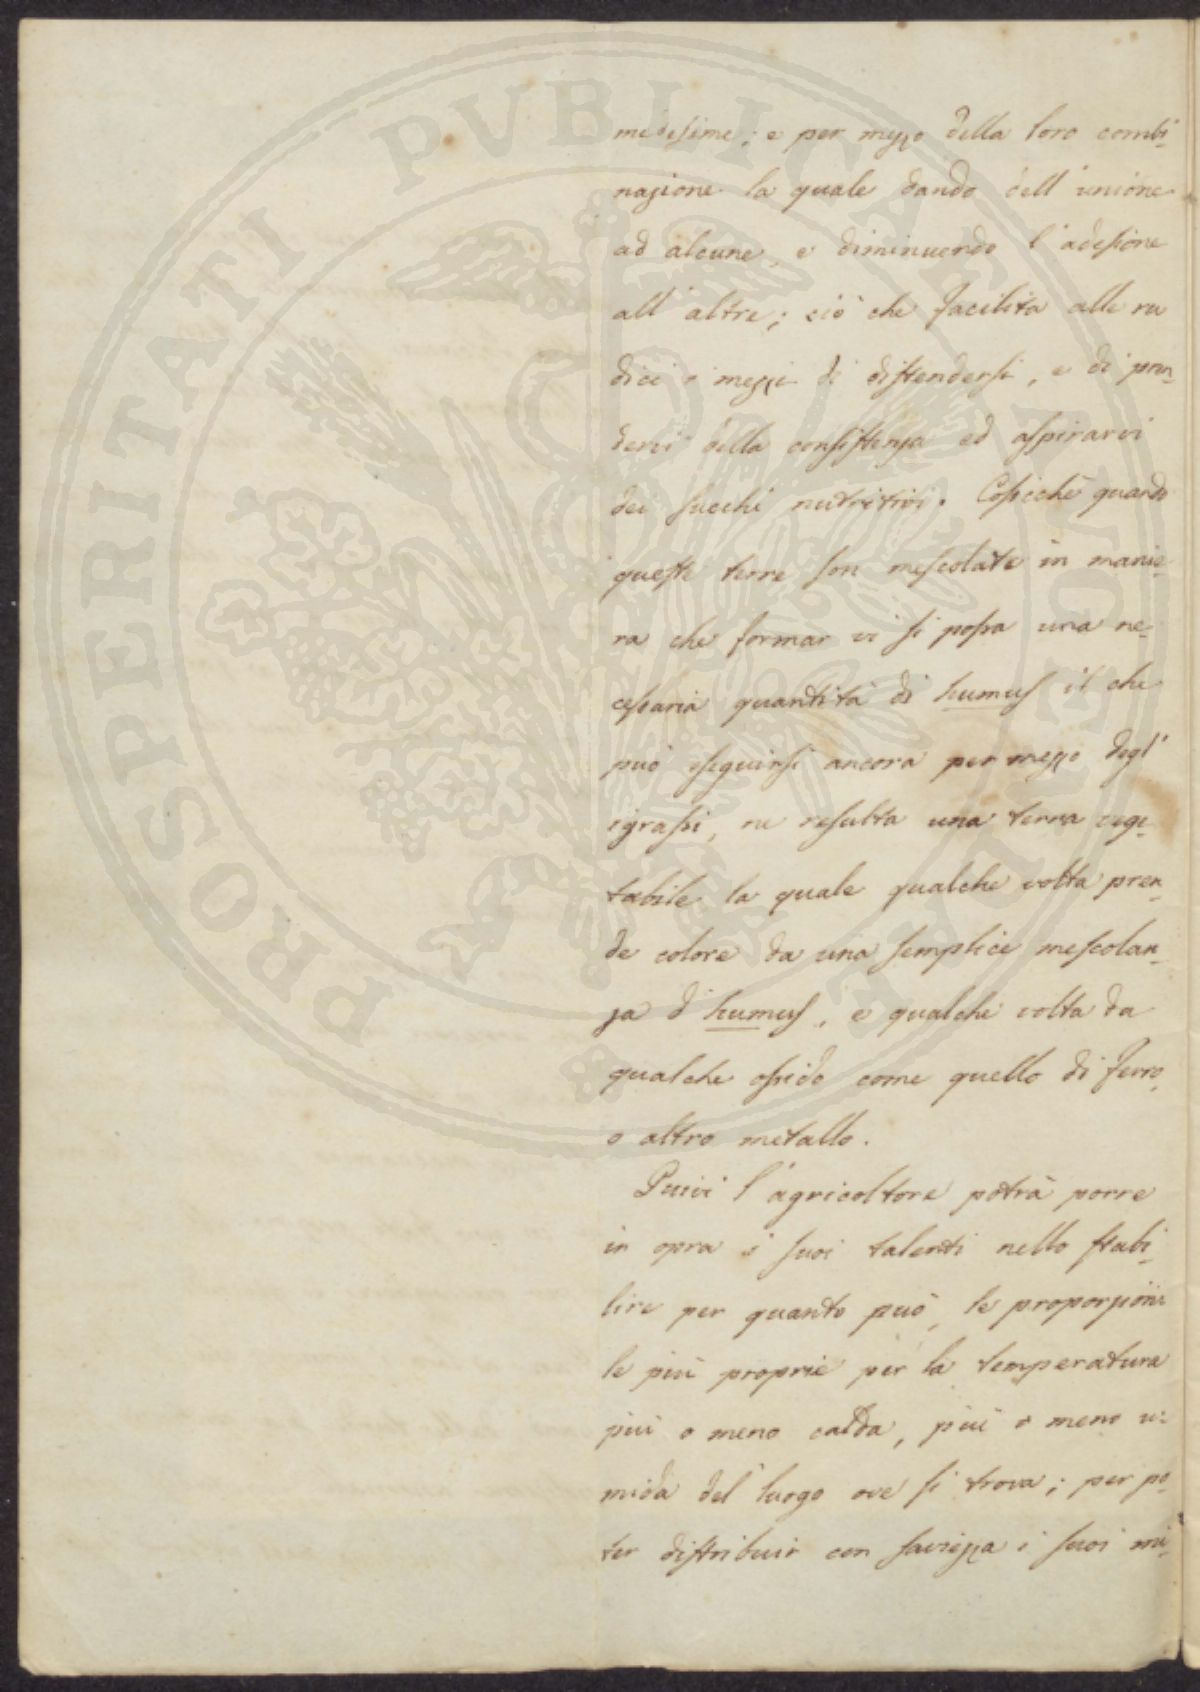 PROSPERITATI PVBLICAE AVGENDAE
medesime; e per mezzo della loro combi-
nazione la quale dando dell'unione
ad alcune, e diminuendo l'adesione
all'altre; ciò che facilita alle ra
dici i mezzi di distendersi, e di pren-
dervi della consistenza ed aspirarvi
dei succhi nutritivi. Cosicchè quando
queste terre son mescolate in manie-
ra che formar vi si possa una ne-
cessaria quantità di humus il che
può eseguirsi ancora per mezzo degl'
igrassi, ne resulta una terra vege-
tabile la quale qualche volta pren-
de colore da una semplice mescolan-
za d'humus, e qualche volta da
qualche ossido come quello di ferro,
o altro metallo.
Quivi l'agricoltore potrà porre
in opra i suoi talenti nello stabi-
lire per quanto può, le proporzioni
le più proprie per la temperatura
più o meno calda, più o meno u-
mida del luogo ove si trova; per po-
ter distribuir con saviezza i suoi mi-